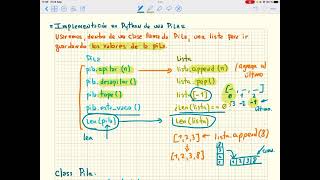 * Implementación en Python de una Pila:
Usaremos, dentro de una clase llamada Pila, una lista para ir
guardando los valores de la pila.
Pila
Lista
pila.apilar(n) → lista.append(n) /agrega al último.
pila.desapilar() → lista.pop()
pila.tope() → lista[-1]
pila.esta_vacia() → ¿len(lista)==0
len(pila) → len(lista)
len
[1,2,3] ← lista.append(8)
→ [1,2,3,8]
class Pila: